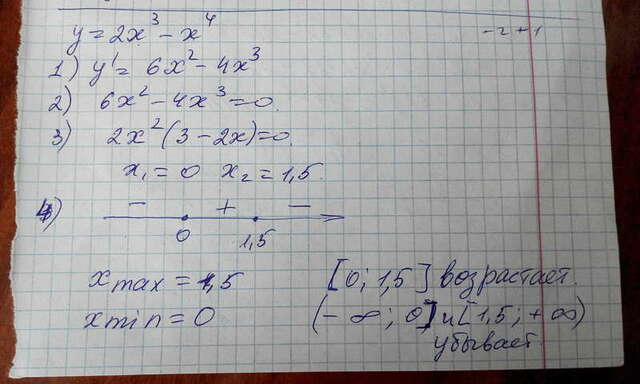 y = 2x³ - x⁴
-2+1
1) y' = 6x² - 4x³
2) 6x² - 4x³ = 0.
3) 2x²(3 - 2x) = 0.
x₁ = 0 x₂ = 1,5.
4) - + -
0 1,5
x max = 1,5 [0; 1,5] возрастает.
x min = 0 (-∞; 0] и [1,5; +∞)
убывает.